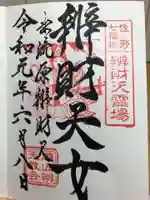 佐野
七福神
辨財天霊場
辨財天女
出流原辨財天
令和元年六月八日